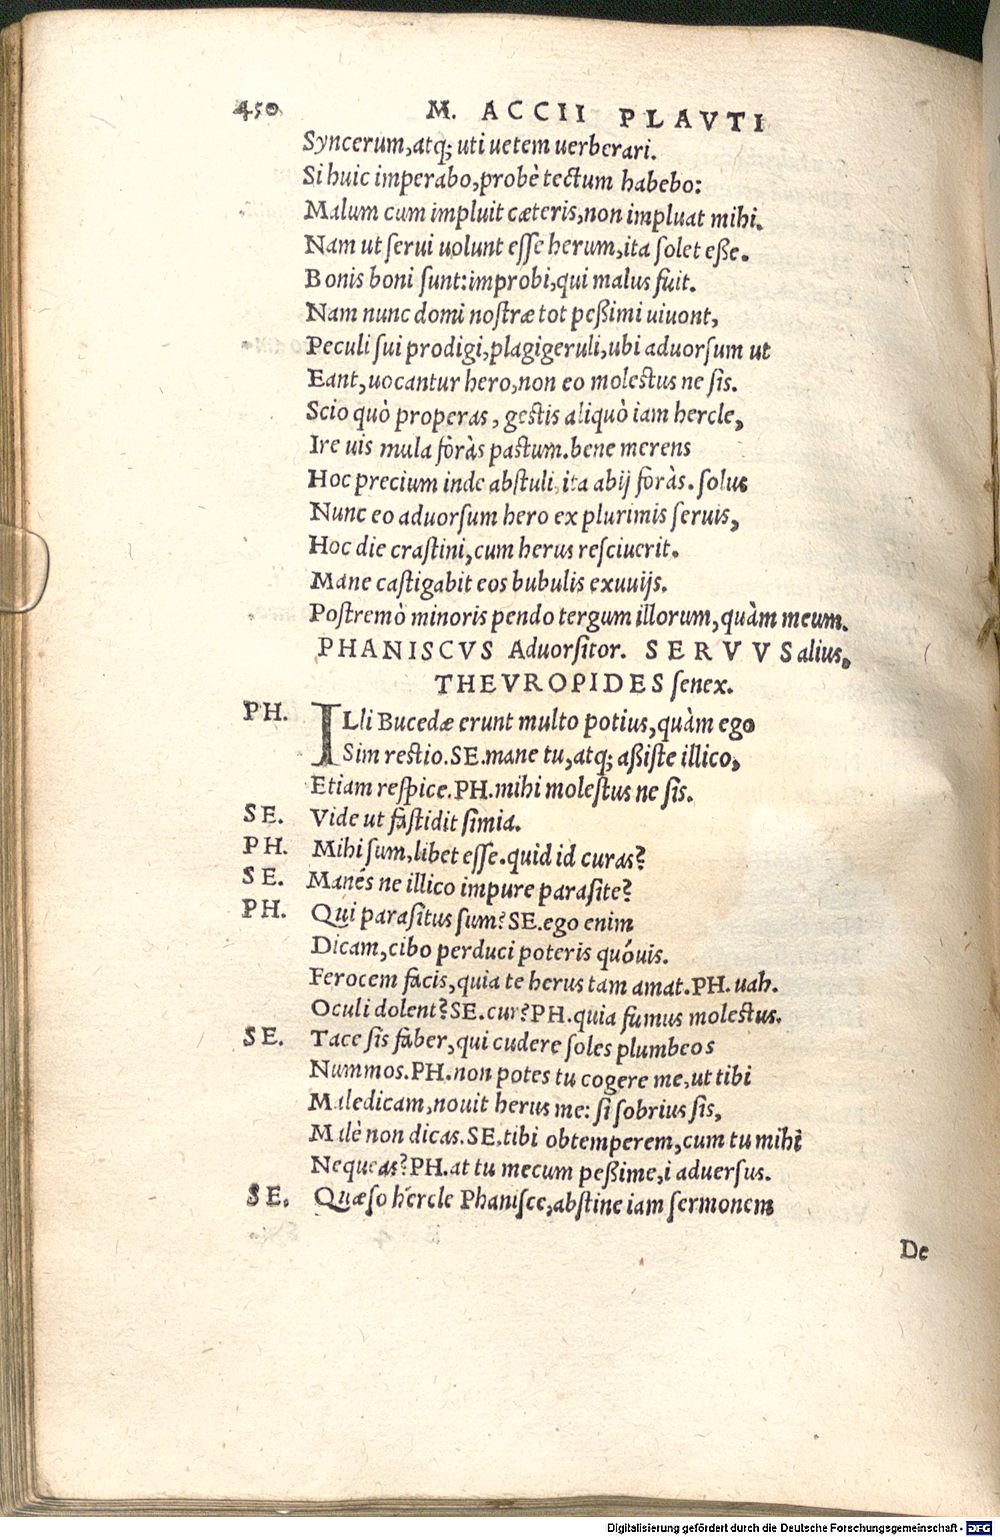 450 M. ACCII PLAVTI
Syncerum, atq; uti uetem uerberari.
Si huic imperabo, probè tectum habebo:
Malum cum impluit cæteris, non impluat mihi.
Nam ut ſerui uolunt eſſe herum, ita ſolet eße.
Bonis boni ſunt: improbi, qui malus fuit.
Nam nunc domi noſtræ tot peßimi uiuont,
Peculi ſui prodigi, plagigeruli, ubi aduorſum ut
Eant, uocantur hero, non eo moleſtus ne ſis.
Scio quò properas, geſtis aliquò iam hercle,
Ire uis mula foràs paſtum. bene merens
Hoc precium inde abſtuli, ita abij foràs. ſolus
Nunc eo aduorſum hero ex plurimis ſeruis,
Hoc die craſtini, cum herus reſciuerit.
Mane caſtigabit eos bubulis exuuijs.
Poſtremò minoris pendo tergum illorum, quàm meum.
PHANISCVS Aduorſitor. SERVVS alius,
THEVROPIDES ſenex.
PH. ILli Bucedæ erunt multo potius, quàm ego
Sim reſtio. SE. mane tu, atq; aßiſte illico,
Etiam reſpice. PH. mihi moleſtus ne ſis.
SE. Vide ut faſtidit ſimia.
PH. Mihi ſum, libet eſſe. quid id curas?
SE. Manés ne illico impure paraſite?
PH. Qui paraſitus ſum? SE. ego enim
Dicam, cibo perduci poteris quóuis.
Ferocem facis, quia te herus tam amat. PH. uah.
Oculi dolent? SE. cur? PH. quia fumus moleſtus.
SE. Tace ſis faber, qui cudere ſoles plumbeos
Nummos. PH. non potes tu cogere me, ut tibi
Maledicam, nouit herus me: ſi ſobrius ſis,
Malè non dicas. SE. tibi obtemperem, cum tu mihi
Nequeas? PH. at tu mecum peßime, i aduerſus.
SE. Quæſo hercle Phaniſce, abſtine iam ſermonem
De
Digitalisierung gefördert durch die Deutsche Forschungsgemeinschaft - DFG